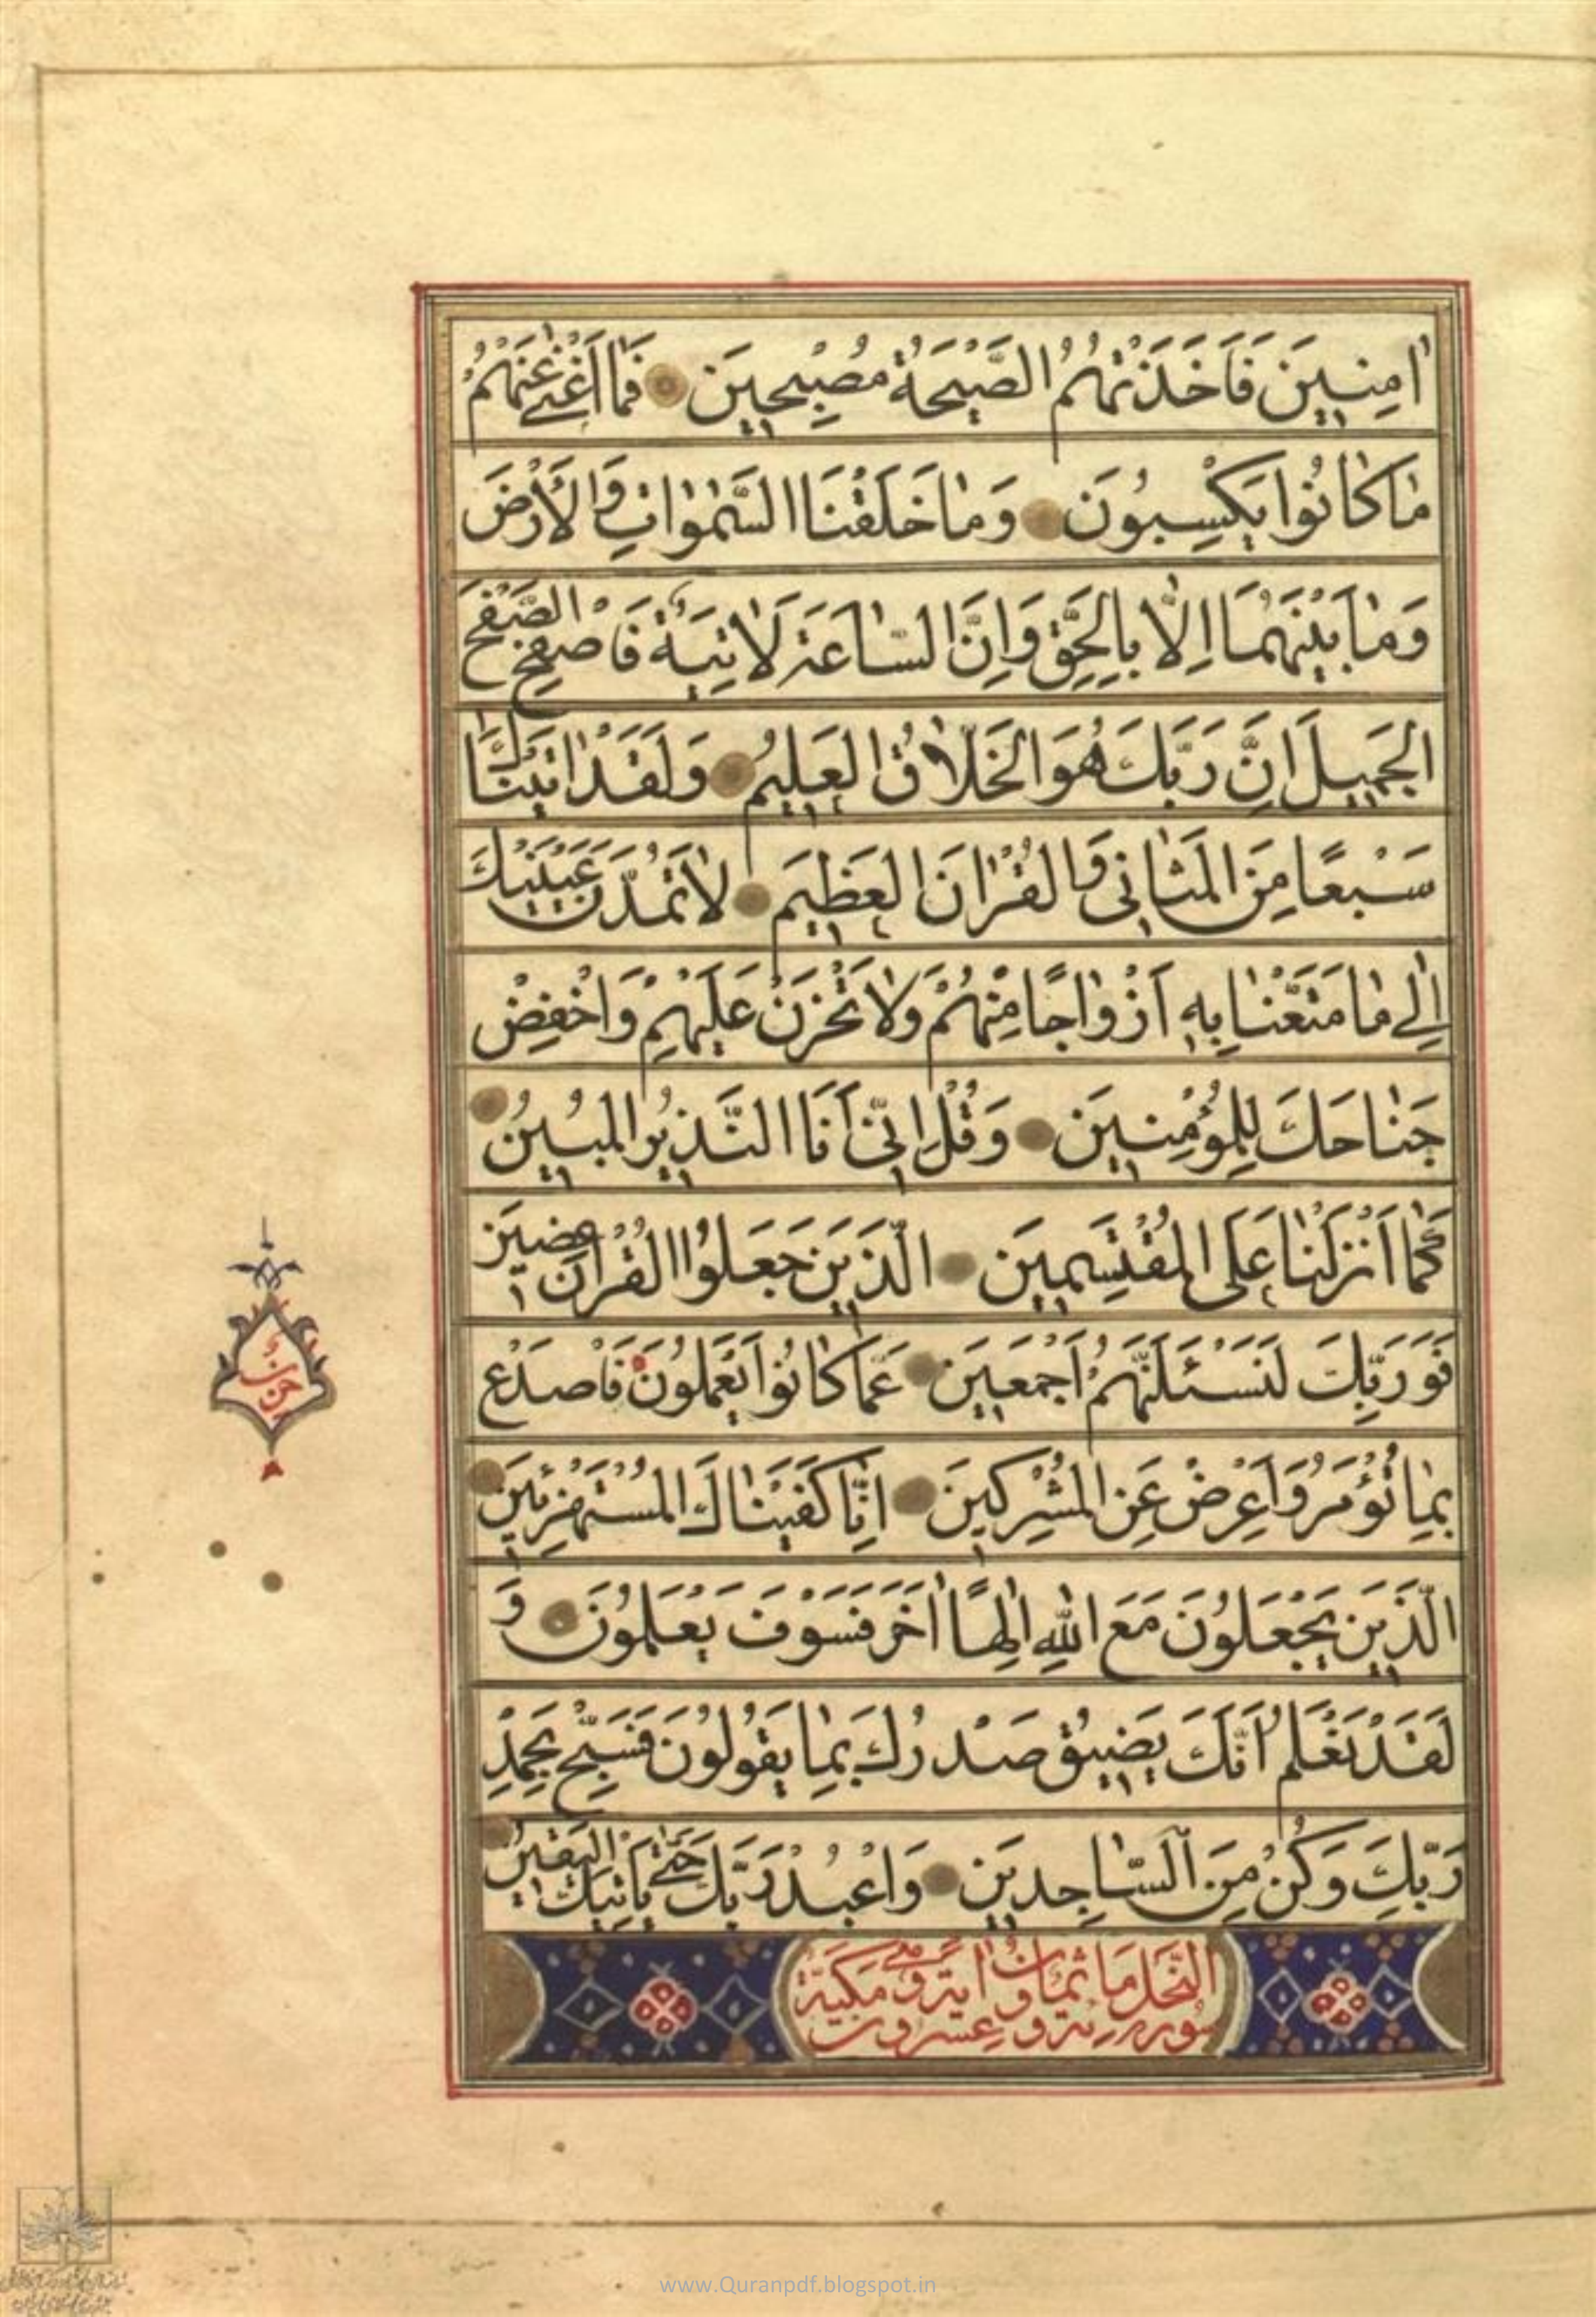 اٰمِنِينَ فَاَخَذَتْهُمُ الصَّيْحَةُ مُصْبِحِينَ فَمٰا اَغْنىٰ عَنْهُمْ
مٰا كٰانُوا يَكْسِبُونَ وَمٰا خَلَقْنَا السَّمٰوٰاتِ وَالْاَرْضَ
وَمٰا بَيْنَهُمٰا اِلّٰا بِالْحَقِّ وَاِنَّ السّٰاعَةَ لَاٰتِيَةٌ فَاصْفَحِ الصَّفْحَ
الْجَمِيلَ اِنَّ رَبَّكَ هُوَ الْخَلّٰاقُ الْعَلِيمُ وَلَقَدْ اٰتَيْنٰاكَ
سَبْعًا مِنَ الْمَثٰانِي وَالْقُرْاٰنَ الْعَظِيمَ لٰا تَمُدَّنَّ عَيْنَيْكَ
اِلىٰ مٰا مَتَّعْنٰا بِهِ اَزْوٰاجًا مِنْهُمْ وَلٰا تَحْزَنْ عَلَيْهِمْ وَاخْفِضْ
جَنٰاحَكَ لِلْمُؤْمِنِينَ وَقُلْ اِنِّي اَنَا النَّذِيرُ الْمُبِينُ
كَمٰا اَنْزَلْنٰا عَلَى الْمُقْتَسِمِينَ الَّذِينَ جَعَلُوا الْقُرْاٰنَ عِضِينَ
فَوَرَبِّكَ لَنَسْئَلَنَّهُمْ اَجْمَعِينَ عَمّٰا كٰانُوا يَعْمَلُونَ فَاصْدَعْ
بِمٰا تُؤْمَرُ وَاَعْرِضْ عَنِ الْمُشْرِكِينَ اِنّٰا كَفَيْنٰاكَ الْمُسْتَهْزِئِينَ
الَّذِينَ يَجْعَلُونَ مَعَ اللّٰهِ اِلٰهًا اٰخَرَ فَسَوْفَ يَعْلَمُونَ وَ
لَقَدْ نَعْلَمُ اَنَّكَ يَضِيقُ صَدْرُكَ بِمٰا يَقُولُونَ فَسَبِّحْ بِحَمْدِ
رَبِّكَ وَكُنْ مِنَ السّٰاجِدِينَ وَاعْبُدْ رَبَّكَ حَتّىٰ يَأْتِيَكَ الْيَقِينُ
سورة النحل مائة وثمان وعشرون اية وهي مكية
حزب
www.Quranpdf.blogspot.in